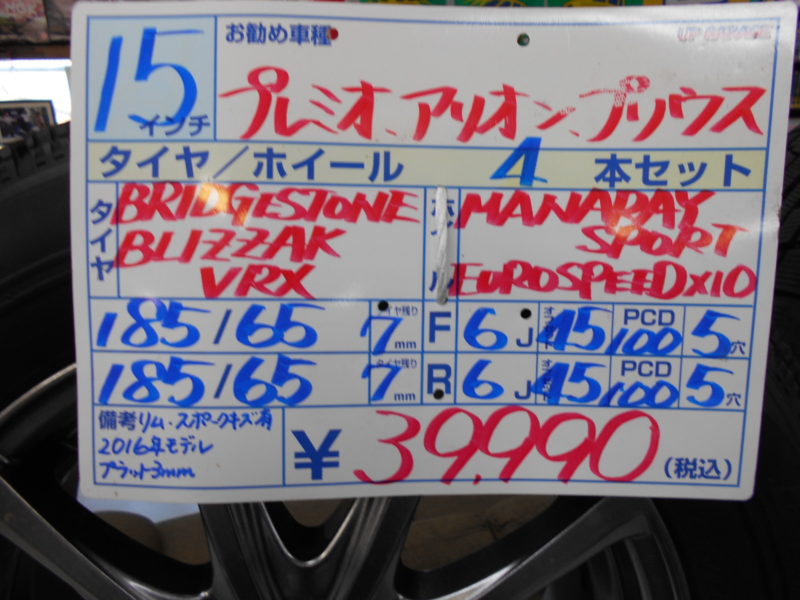 お勧め車種
UP GARAGE
15インチ
プレミオ、アリオン、プリウス
タイヤ／ホイール 4 本セット
タイヤ
BRIDGESTONE
BLIZZAK
VRX
MANARAY
SPORT
EUROSPEED X10
185/65 タイヤ残り 7mm F 6J オフセット 45 PCD 100 5穴
185/65 タイヤ残り 7mm R 6J オフセット 45 PCD 100 5穴
備考 リム・スポークキズ有
2016年モデル
プラット3mm
¥39,990(税込)